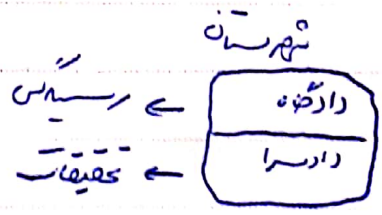 شهرستان
دادگاه ← رسیدگی
دادسرا ← تحقیقات